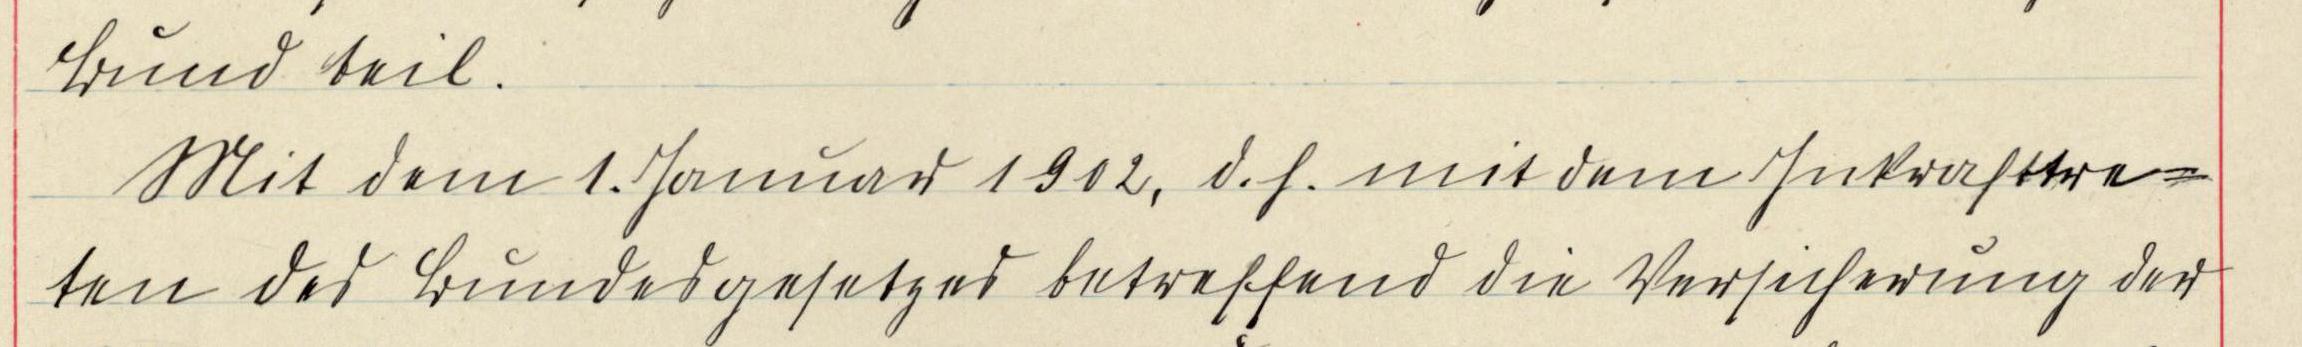 Bund teil.
Mit dem 1. Januar 1902, d. h. mit dem Inkrafttre=
ten des Bundesgesetzes betreffend die Versicherung der